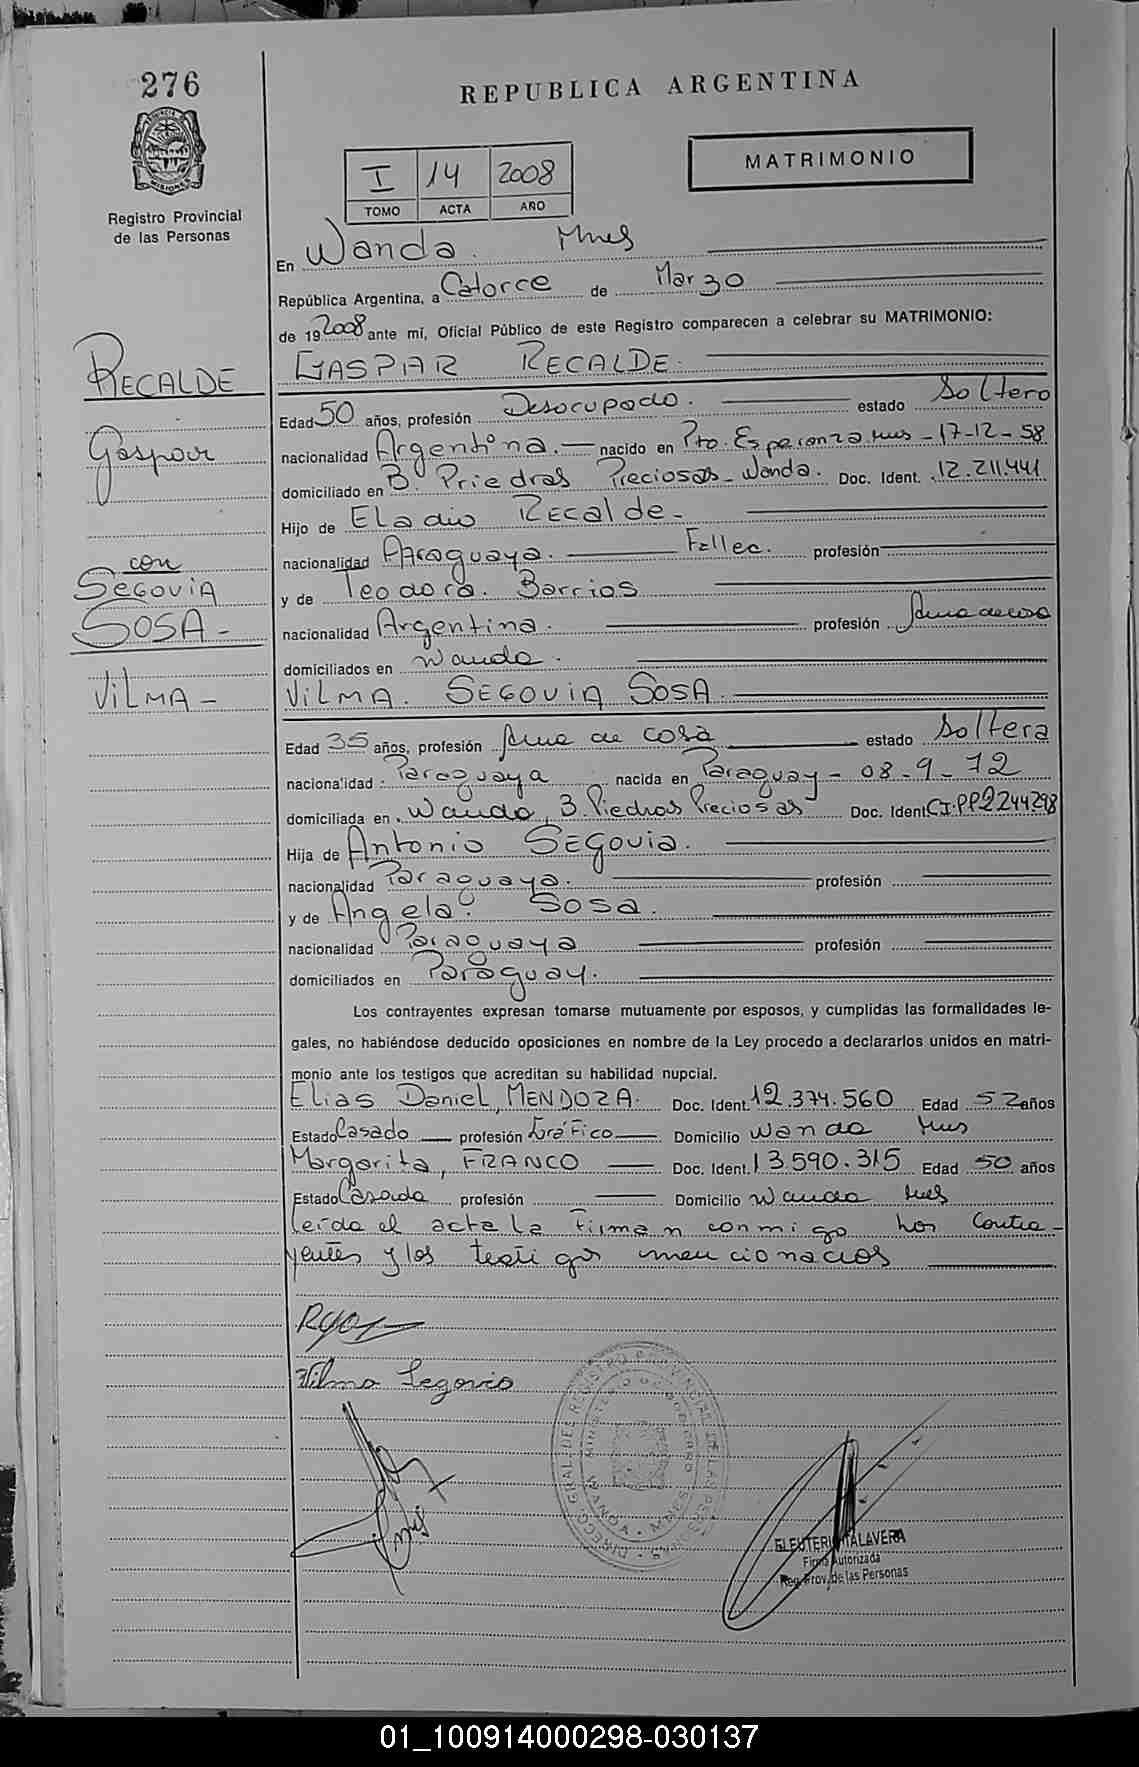 276
REPUBLICA ARGENTINA
MATRIMONIO
I 14 2008
TOMO ACTA AÑO
Registro Provincial
de las Personas
En Wanda. Mnes
República Argentina, a Catorce de Marzo
de 19 2008 ante mí, Oficial Público de este Registro comparecen a celebrar su MATRIMONIO:
GASPAR RECALDE.
RECALDE
Gaspar
con
SEGOVIA
SOSA-
ViLMA-
Edad 50 años, profesión Desocupado. estado Soltero
nacionalidad Argentina. nacido en Pto. Esperanza. Mns - 17-12-58
domiciliado en B. Priedras Preciosas - Wanda. Doc. Ident. 12.211.441
Hijo de Eladio Recalde.
nacionalidad Paraguaya. Fallec. profesión
y de Teodora. Barrios
nacionalidad Argentina. profesión Ama de casa
domiciliados en Wanda.
ViLMA. SEGOVIA SOSA.
Edad 35 años, profesión Ama de casa estado Soltera
nacionalidad Paraguaya nacida en Paraguay - 08-9-72
domiciliada en Wanda, B. Piedras Preciosas Doc. Ident. CI.PP2244298
Hija de Antonio SEGOVIA.
nacionalidad Paraguaya. profesión
y de Angela. Sosa.
nacionalidad Paraguaya profesión
domiciliados en Paraguay.
Los contrayentes expresan tomarse mutuamente por esposos, y cumplidas las formalidades le-
gales, no habiéndose deducido oposiciones en nombre de la Ley procedo a declararlos unidos en matri-
monio ante los testigos que acreditan su habilidad nupcial.
Elias Daniel, MENDOZA. Doc. Ident. 12.374.560 Edad 52 años
Estado Casado profesión Gráfico Domicilio Wanda Mns
Margarita, FRANCO Doc. Ident. 13.590.315 Edad 50 años
Estado Casada profesión Domicilio Wanda Mnes
leída el acta la Firman conmigo los Contra-
yentes y los testigos mencionados
Vilma Segovia
DIRECC. GRAL. DEL REGISTRO PROVINCIAL DE LAS PERSONAS
MINISTERIO DE GOBIERNO
WANDA - MNES
ELEUTERIO TALAVERA
Firma Autorizada
Reg. Prov. de las Personas
01_100914000298-030137